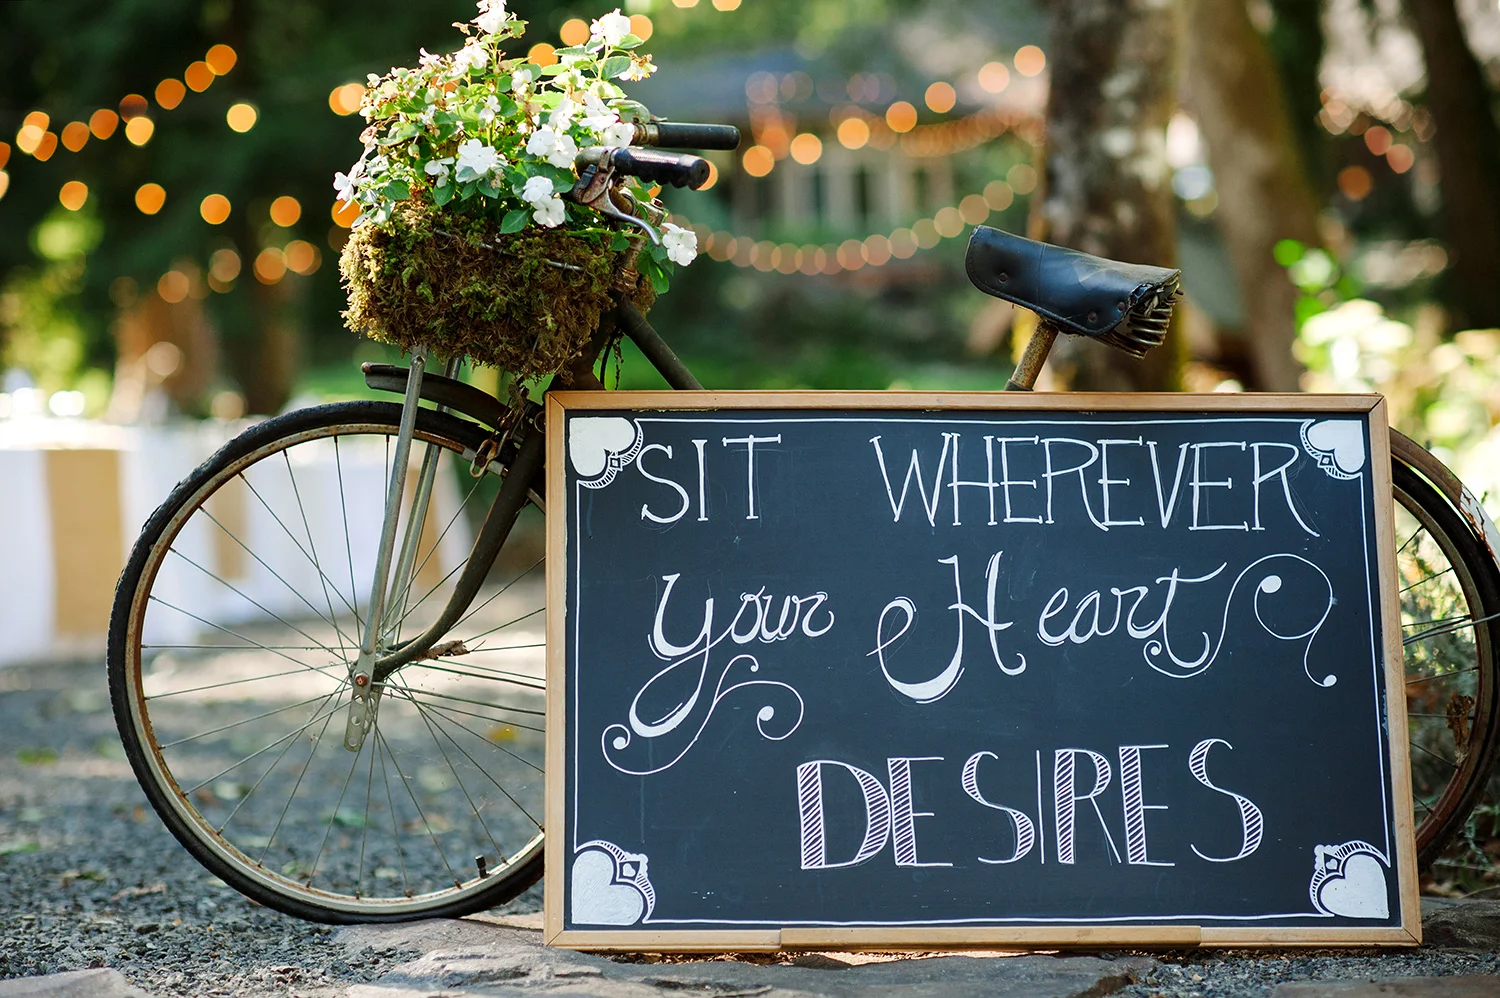 SIT WHEREVER
your Heart
DESIRES